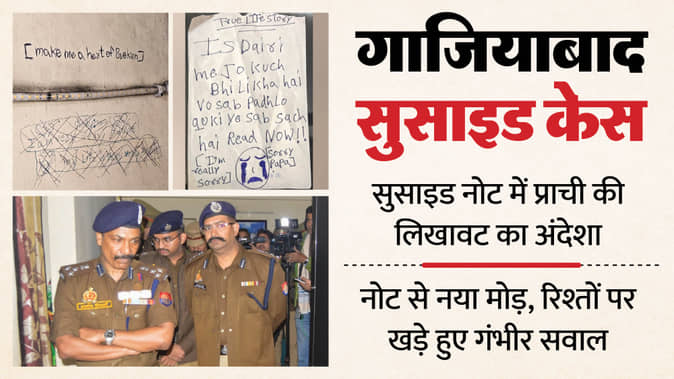 [make me a heart of Broken]
True Life story
Is Dairi
me Jo kuch
Bhi Likha hai
Vo sab Padhlo
quki yo sab sach
hai Read NOW!!
[I'm really sorry]
[sorry Papa]
गाजियाबाद
सुसाइड केस
सुसाइड नोट में प्राची की
लिखावट का अंदेशा
नोट से नया मोड़, रिश्तों पर
खड़े हुए गंभीर सवाल